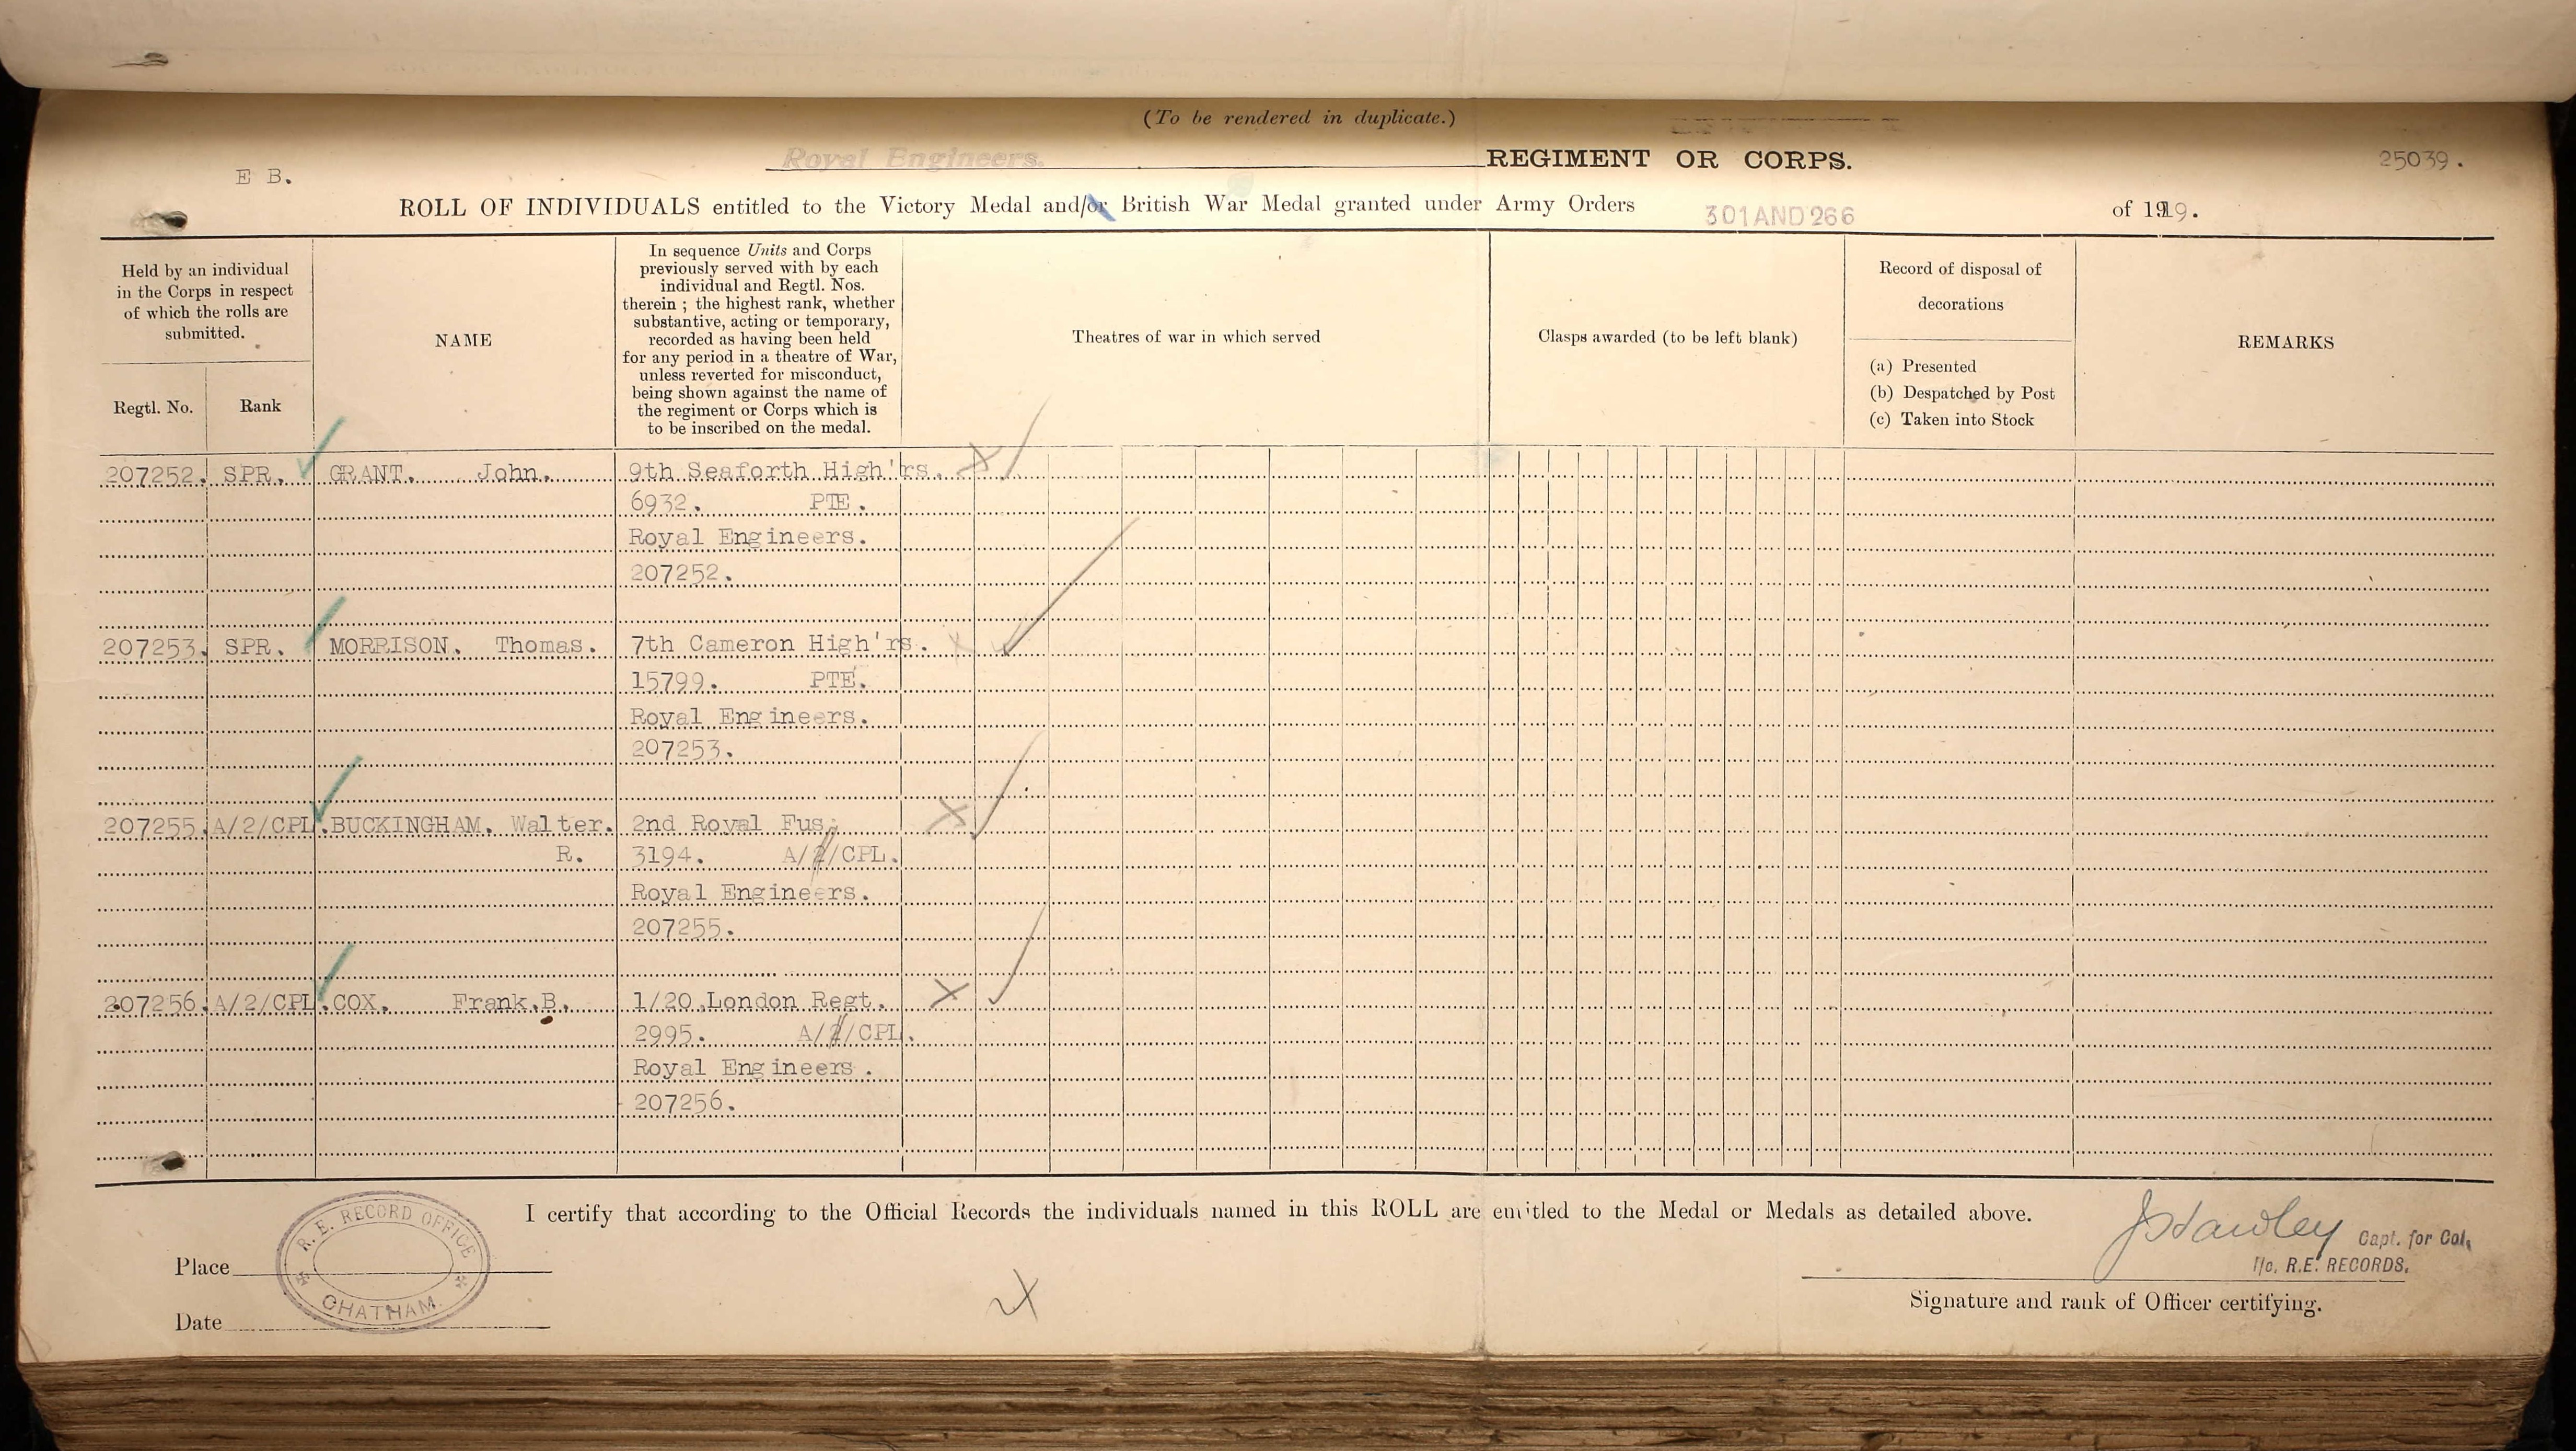 (To be rendered in duplicate.)
Royal Engineers. REGIMENT OR CORPS. 25039.
E B.
ROLL OF INDIVIDUALS entitled to the Victory Medal and/or British War Medal granted under Army Orders 301 AND 266 of 1919.
Held by an individual
in the Corps in respect
of which the rolls are
submitted.
Regtl. No. Rank
NAME
In sequence Units and Corps
previously served with by each
individual and Regtl. Nos.
therein ; the highest rank, whether
substantive, acting or temporary,
recorded as having been held
for any period in a theatre of War,
unless reverted for misconduct,
being shown against the name of
the regiment or Corps which is
to be inscribed on the medal.
Theatres of war in which served
Clasps awarded (to be left blank)
Record of disposal of
decorations
(a) Presented
(b) Despatched by Post
(c) Taken into Stock
REMARKS
207252. SPR. GRANT. John. 9th Seaforth High'rs. X
6932. PTE.
Royal Engineers.
207252.
207253. SPR. MORRISON. Thomas. 7th Cameron High'rs. X
15799. PTE.
Royal Engineers.
207253.
207255. A/2/CPL. BUCKINGHAM. Walter. 2nd Royal Fus. X
R. 3194. A/2/CPL.
Royal Engineers.
207255.
207256. A/2/CPL. COX. Frank.B. 1/20 London Regt. X
2995. A/2/CPL.
Royal Engineers.
207256.
I certify that according to the Official Records the individuals named in this ROLL are entitled to the Medal or Medals as detailed above.
R. E. RECORD OFFICE
CHATHAM
Place
Date
Capt. for Col.
I/c. R.E. RECORDS.
Signature and rank of Officer certifying.